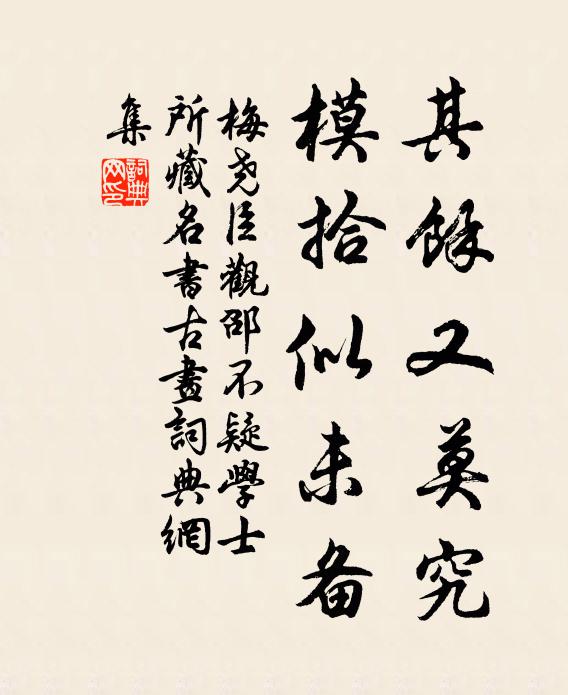 其餘又莫究
模拾似未备
梅尧臣觀邵不疑學士
所藏名書古畫詞典網
集
詞典網印